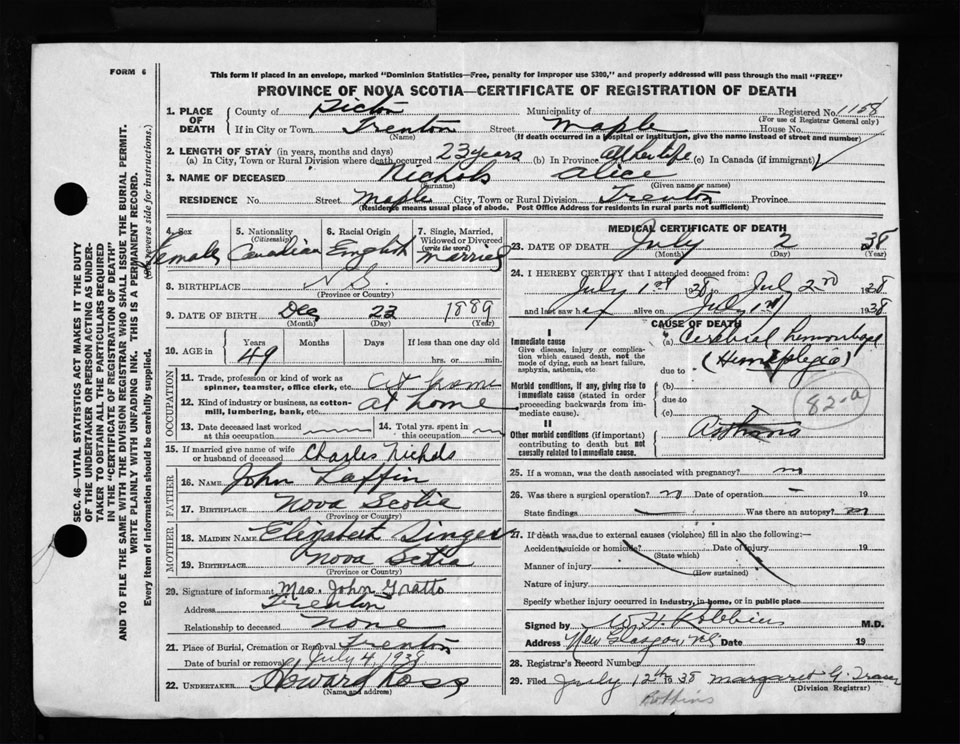 FORM 6
This form if placed in an envelope, marked "Dominion Statistics—Free, penalty for improper use $300," and properly addressed will pass through the mail "FREE"
PROVINCE OF NOVA SCOTIA—CERTIFICATE OF REGISTRATION OF DEATH
SEC. 46—VITAL STATISTICS ACT MAKES IT THE DUTY
OF THE UNDERTAKER OR PERSON ACTING AS UNDER-
TAKER TO OBTAIN ALL THE PARTICULARS REQUIRED
IN THE "CERTIFICATE OF REGISTRATION OF DEATH"
AND TO FILE THE SAME WITH THE DIVISION REGISTRAR WHO SHALL ISSUE THE BURIAL PERMIT.
WRITE PLAINLY WITH UNFADING INK. THIS IS A PERMANENT RECORD.
Every item of Information should be carefully supplied. (See reverse side for instructions.)
1. PLACE OF DEATH County of Pictou Municipality of Registered No. 1158
(For use of Registrar General only)
If in City or Town Trenton Street Maple House No.
(Name) (If death occurred in a hospital or institution, give the name instead of street and number)
2. LENGTH OF STAY (in years, months and days)
(a) In City, Town or Rural Division where death occurred 23 years (b) In Province all her life (c) In Canada (if immigrant)
3. NAME OF DECEASED Nichols Alice
(Surname) (Given name or names)
RESIDENCE No. Street Maple City, Town or Rural Division Trenton Province
(Residence means usual place of abode. Post Office Address for residents in rural parts not sufficient)
4. Sex Female
5. Nationality (Citizenship) Canadian
6. Racial Origin English
7. Single, Married, Widowed or Divorced (write the word) Married
8. BIRTHPLACE N.S.
(Province or Country)
9. DATE OF BIRTH Dec 22 1889
(Month) (Day) (Year)
10. AGE in Years Months Days If less than one day old
49 hrs. or min.
OCCUPATION
11. Trade, profession or kind of work as spinner, teamster, office clerk, etc. at home
12. Kind of industry or business, as cotton-mill, lumbering, bank, etc. at home
13. Date deceased last worked at this occupation
14. Total yrs. spent in this occupation
15. If married give name of wife or husband of deceased Charles Nichols
FATHER
16. NAME John Laffin
17. BIRTHPLACE Nova Scotia
(Province or Country)
MOTHER
18. MAIDEN NAME Elizabeth
19. BIRTHPLACE Nova Scotia
(Province or Country)
20. Signature of informant Mrs. John Gratto
Address Trenton
Relationship to deceased none
21. Place of Burial, Cremation or Removal Trenton
Date of burial or removal July 4, 1938
22. UNDERTAKER Howard Ross
(Name and address)
MEDICAL CERTIFICATE OF DEATH
23. DATE OF DEATH July 2 38
(Month) (Day) (Year)
24. I HEREBY CERTIFY that I attended deceased from:
July 1st 1938 to July 2nd 1938
and last saw h er alive on July 1st 1938
CAUSE OF DEATH
I
Immediate cause
Give disease, injury or complication which caused death, not the mode of dying, such as heart failure, asphyxia, asthenia, etc.
(a) Cerebral hemorrhage
(Hemiplegia)
due to
Morbid conditions, if any, giving rise to immediate cause (stated in order proceeding backwards from immediate cause).
(b)
due to
(c)
82-a
II
Other morbid conditions (if important) contributing to death but not causally related to immediate cause.
Asthma
25. If a woman, was the death associated with pregnancy? no
26. Was there a surgical operation? no Date of operation 19
State findings Was there an autopsy? no
27. If death was due to external causes (violence) fill in also the following:—
Accident, suicide or homicide? Date of injury 19
(State which)
Manner of injury
(How sustained)
Nature of injury
Specify whether injury occurred in industry, in home, or in public place
Signed by W H Robbins M.D.
Address New Glasgow, N.S. Date 19
28. Registrar's Record Number
29. Filed July 12th 1938 Margaret G. Fraser
(Division Registrar)
Robbins